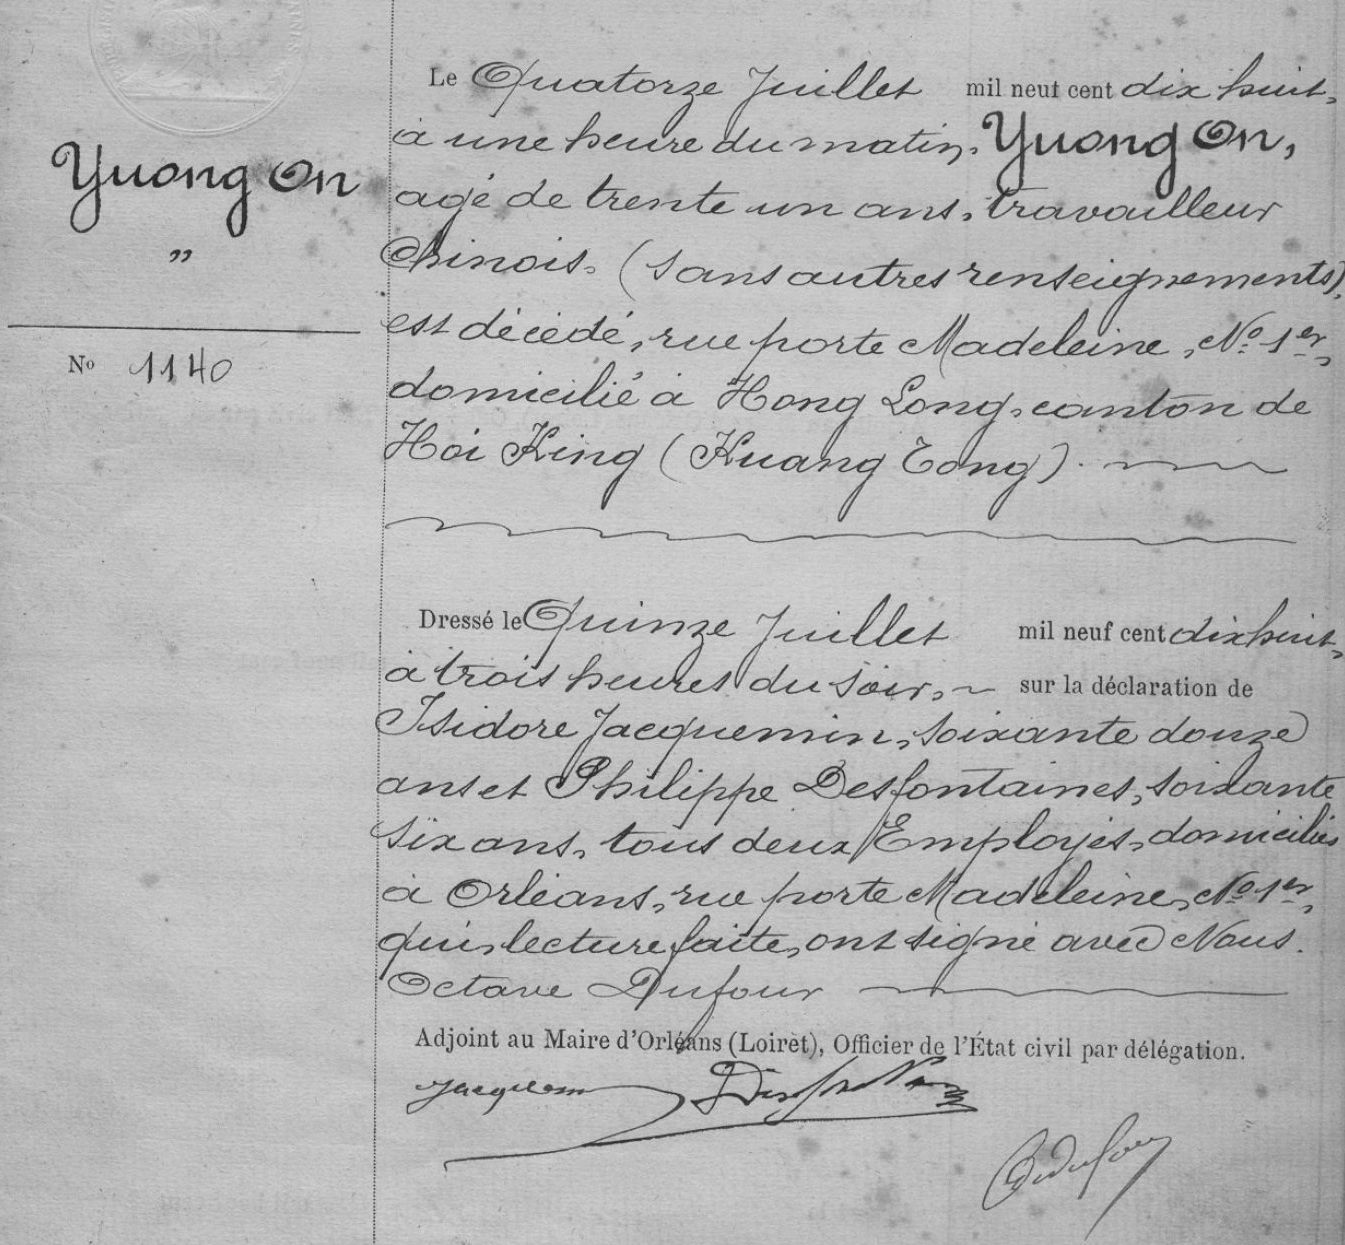 Yuong On
"
No 1140
Le Quatorze Juillet mil neuf cent dix huit,
à une heure du matin, Yuong On,
agé de trente un ans, travailleur
Chinois, (sans autres renseignements),
est décédé, rue porte Madeleine, No 1er,
domicilié à Hong Long, canton de
Hoi King (Kuang Tong).
Dressé le Quinze Juillet mil neuf cent dix huit,
à trois heures du soir, sur la déclaration de
Isidore Jacquemin, soixante douze
ans et Philippe Desfontaines, soixante
six ans, tous deux Employés, domiciliés
à Orléans, rue porte Madeleine, No 1er,
qui, lecture faite, ont signé avec Nous.
Octave Dufour
Adjoint au Maire d'Orléans (Loiret), Officier de l'État civil par délégation.